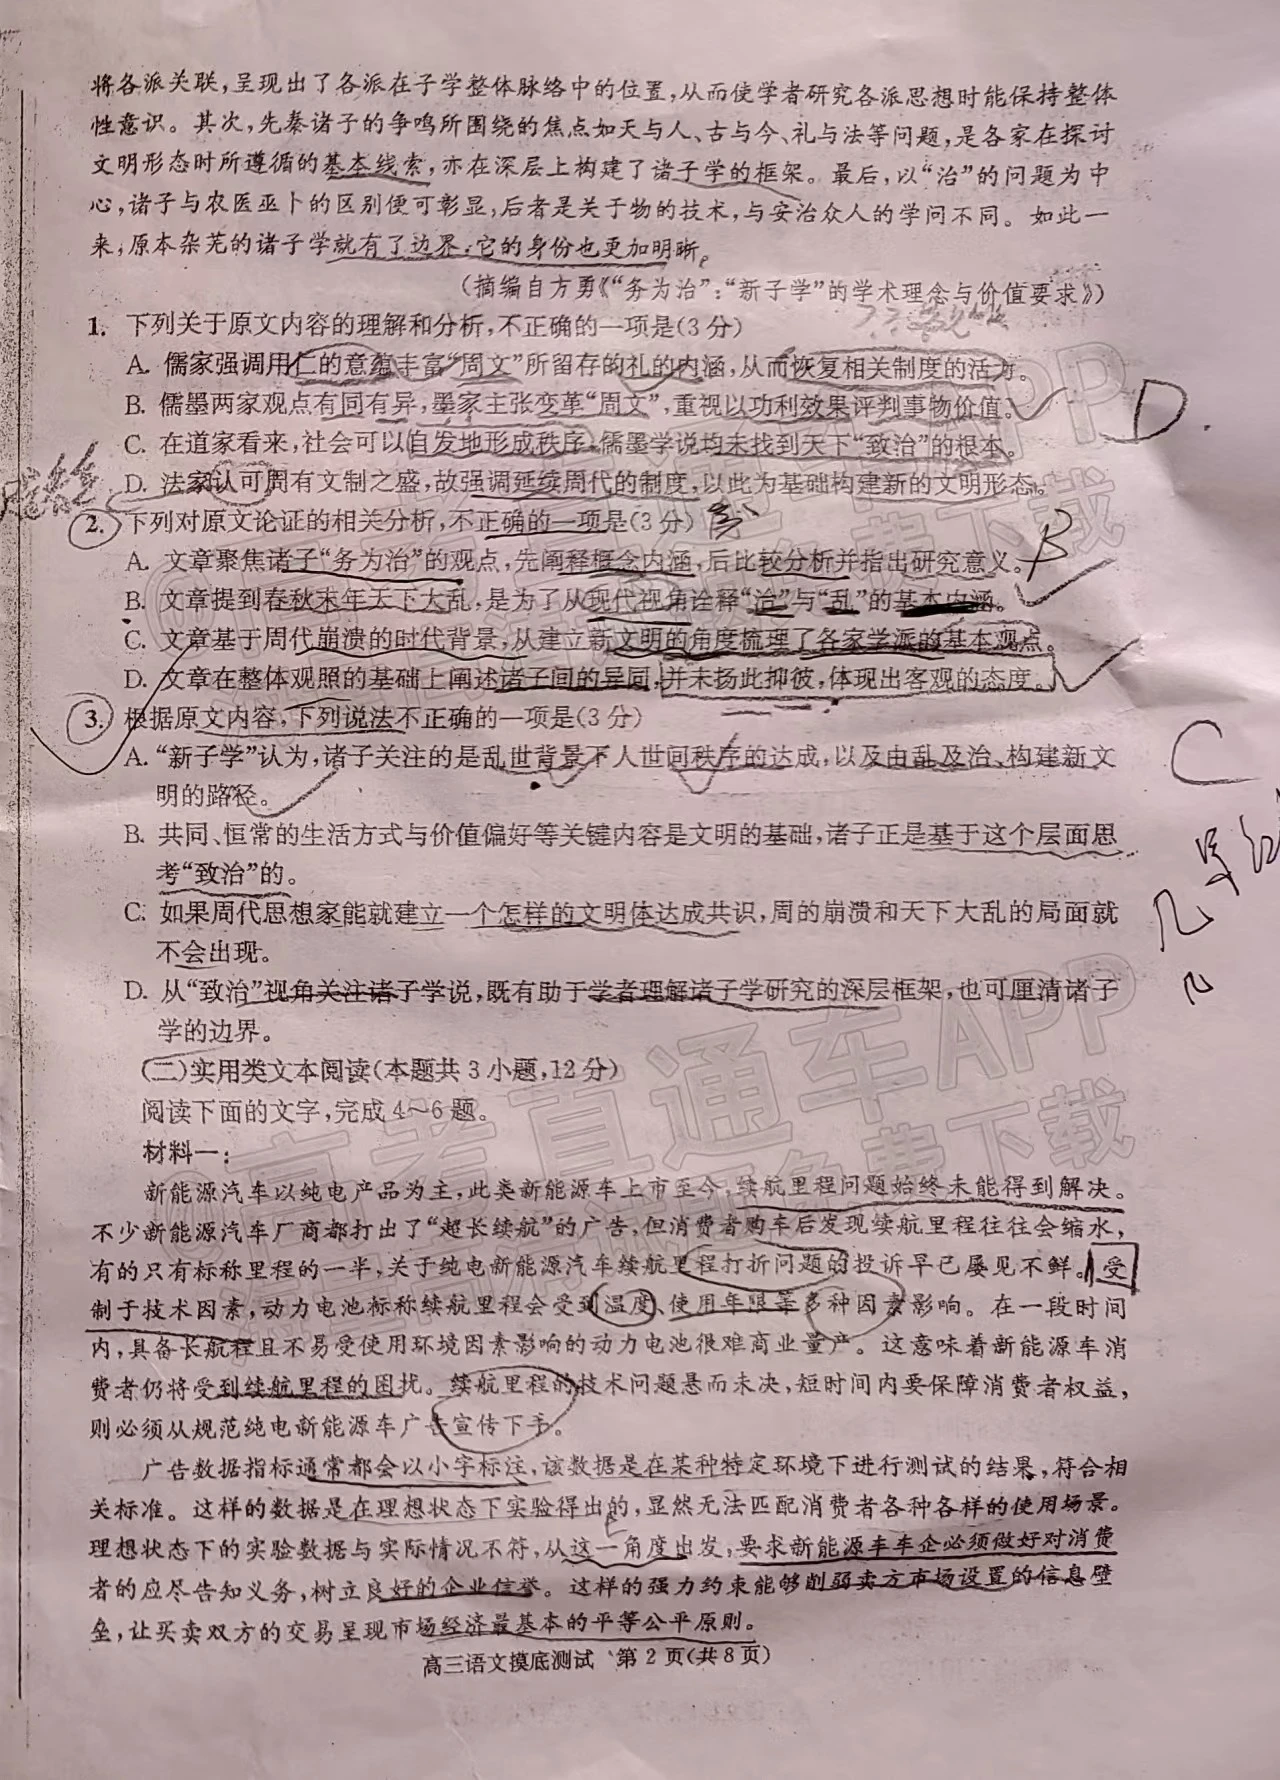 将各派关联,呈现出了各派在子学整体脉络中的位置,从而使学者研究各派思想时能保持整体
性意识。其次,先秦诸子的争鸣所围绕的焦点如天与人、古与今、礼与法等问题,是各家在探讨
文明形态时所遵循的基本线索,亦在深层上构建了诸子学的框架。最后,以“治”的问题为中
心,诸子与农医巫卜的区别便可彰显,后者是关于物的技术,与安治众人的学问不同。如此一
来,原本杂芜的诸子学就有了边界,它的身份也更加明晰。
(摘编自方勇《“务为治”:“新子学”的学术理念与价值要求》)
1. 下列关于原文内容的理解和分析,不正确的一项是(3分)
A. 儒家强调用仁的意蕴丰富“周文”所留存的礼的内涵,从而恢复相关制度的活力。
B. 儒墨两家观点有同有异,墨家主张变革“周文”,重视以功利效果评判事物价值。
D
C. 在道家看来,社会可以自发地形成秩序,儒墨学说均未找到天下“致治”的根本。
D. 法家认可周有文制之盛,故强调延续周代的制度,以此为基础构建新的文明形态。
2. 下列对原文论证的相关分析,不正确的一项是(3分)
A. 文章聚焦诸子“务为治”的观点,先阐释概念内涵,后比较分析并指出研究意义。
B
B. 文章提到春秋末年天下大乱,是为了从现代视角诠释“治”与“乱”的基本内涵。
C. 文章基于周代崩溃的时代背景,从建立新文明的角度梳理了各家学派的基本观点。
D. 文章在整体观照的基础上阐述诸子间的异同,并未扬此抑彼,体现出客观的态度。
3. 根据原文内容,下列说法不正确的一项是(3分)
C
A. “新子学”认为,诸子关注的是乱世背景下人世间秩序的达成,以及由乱及治、构建新文
明的路径。
B. 共同、恒常的生活方式与价值偏好等关键内容是文明的基础,诸子正是基于这个层面思
考“致治”的。
C. 如果周代思想家能就建立一个怎样的文明体达成共识,周的崩溃和天下大乱的局面就
不会出现。
D. 从“致治”视角关注诸子学说,既有助于学者理解诸子学研究的深层框架,也可厘清诸子
学的边界。
(二)实用类文本阅读(本题共3小题,12分)
阅读下面的文字,完成4~6题。
材料一:
新能源汽车以纯电产品为主,此类新能源车上市至今,续航里程问题始终未能得到解决。
不少新能源汽车厂商都打出了“超长续航”的广告,但消费者购车后发现续航里程往往会缩水,
有的只有标称里程的一半,关于纯电新能源汽车续航里程打折问题的投诉早已屡见不鲜。受
制于技术因素,动力电池标称续航里程会受到温度、使用年限等多种因素影响。在一段时间
内,具备长航程且不易受使用环境因素影响的动力电池很难商业量产。这意味着新能源车消
费者仍将受到续航里程的困扰。续航里程的技术问题悬而未决,短时间内要保障消费者权益,
则必须从规范纯电新能源车广告宣传下手。
广告数据指标通常都会以小字标注,该数据是在某种特定环境下进行测试的结果,符合相
关标准。这样的数据是在理想状态下实验得出的,显然无法匹配消费者各种各样的使用场景。
理想状态下的实验数据与实际情况不符,从这一角度出发,要求新能源车车企必须做好对消费
者的应尽告知义务,树立良好的企业信誉。这样的强力约束能够削弱卖方市场设置的信息壁
垒,让买卖双方的交易呈现市场经济最基本的平等公平原则。
高三语文摸底测试 第2页(共8页)
@高考直通车APP
@高考直通车APP